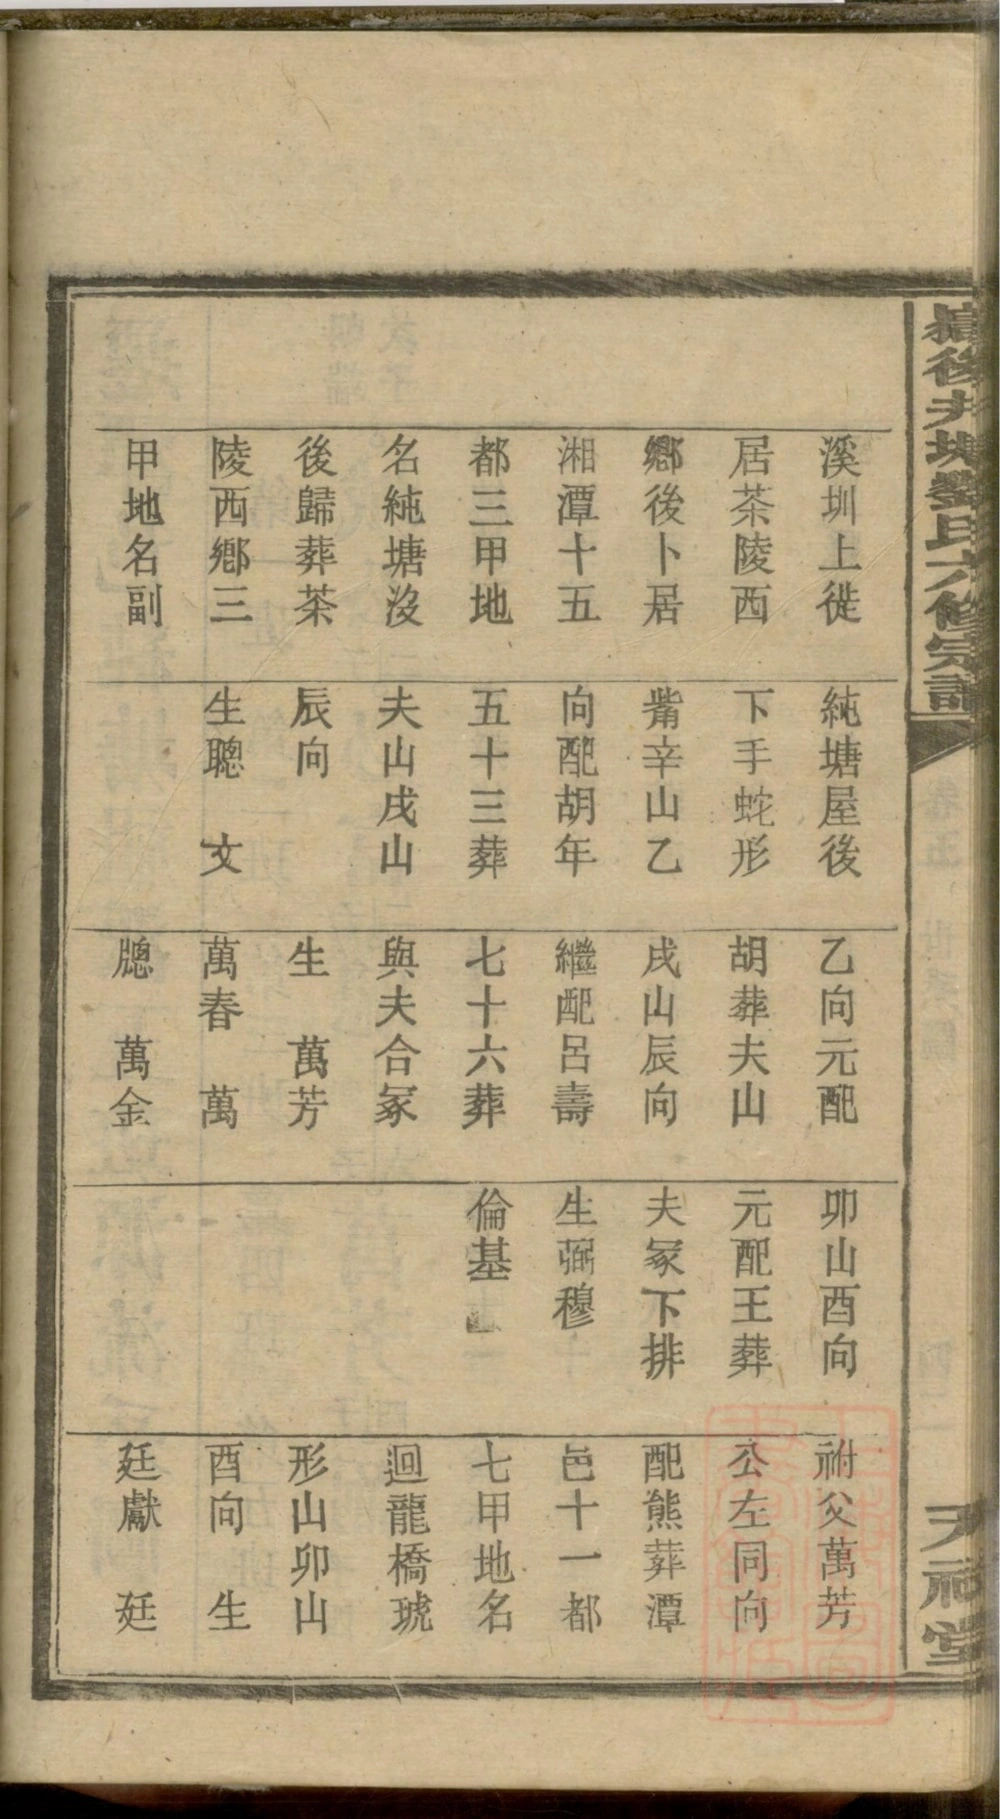 嶽後井塘劉氏六修宗譜
天祿堂
溪圳上徙
居茶陵西
鄉後卜居
湘潭十五
都三甲地
名純塘沒
後歸葬茶
陵西鄉三
甲地名副
純塘屋後
下手蛇形
觜辛山乙
向配胡年
五十三葬
夫山戌山
辰向
生聰 文
乙向元配
胡葬夫山
戌山辰向
繼配呂壽
七十六葬
與夫合冢
生 萬芳
萬春 萬
聰 萬金
卯山酉向
元配王葬
夫冢下排
生弼穆
倫基
祔父萬芳
公左同向
配熊葬潭
邑十一都
七甲地名
迴龍橋琥
形山卯山
酉向 生
廷獻 廷